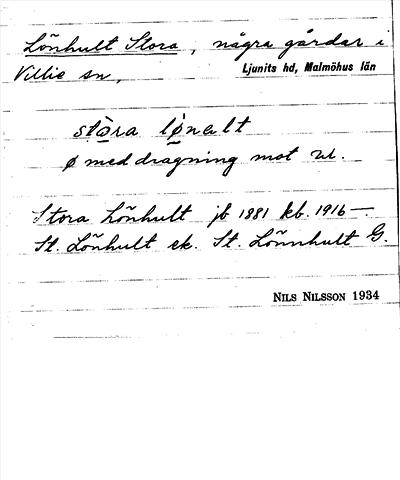 Lönhult Stora, några gårdar i
Villie sn,
Ljunits hd, Malmöhus län
stòra lø̀nalt
ø med dragning mot
Stora Lönhult jb 1881 kb. 1916 —.
St. Lönhult ek. St. Lönnhult G.
NILS NILSSON 1934